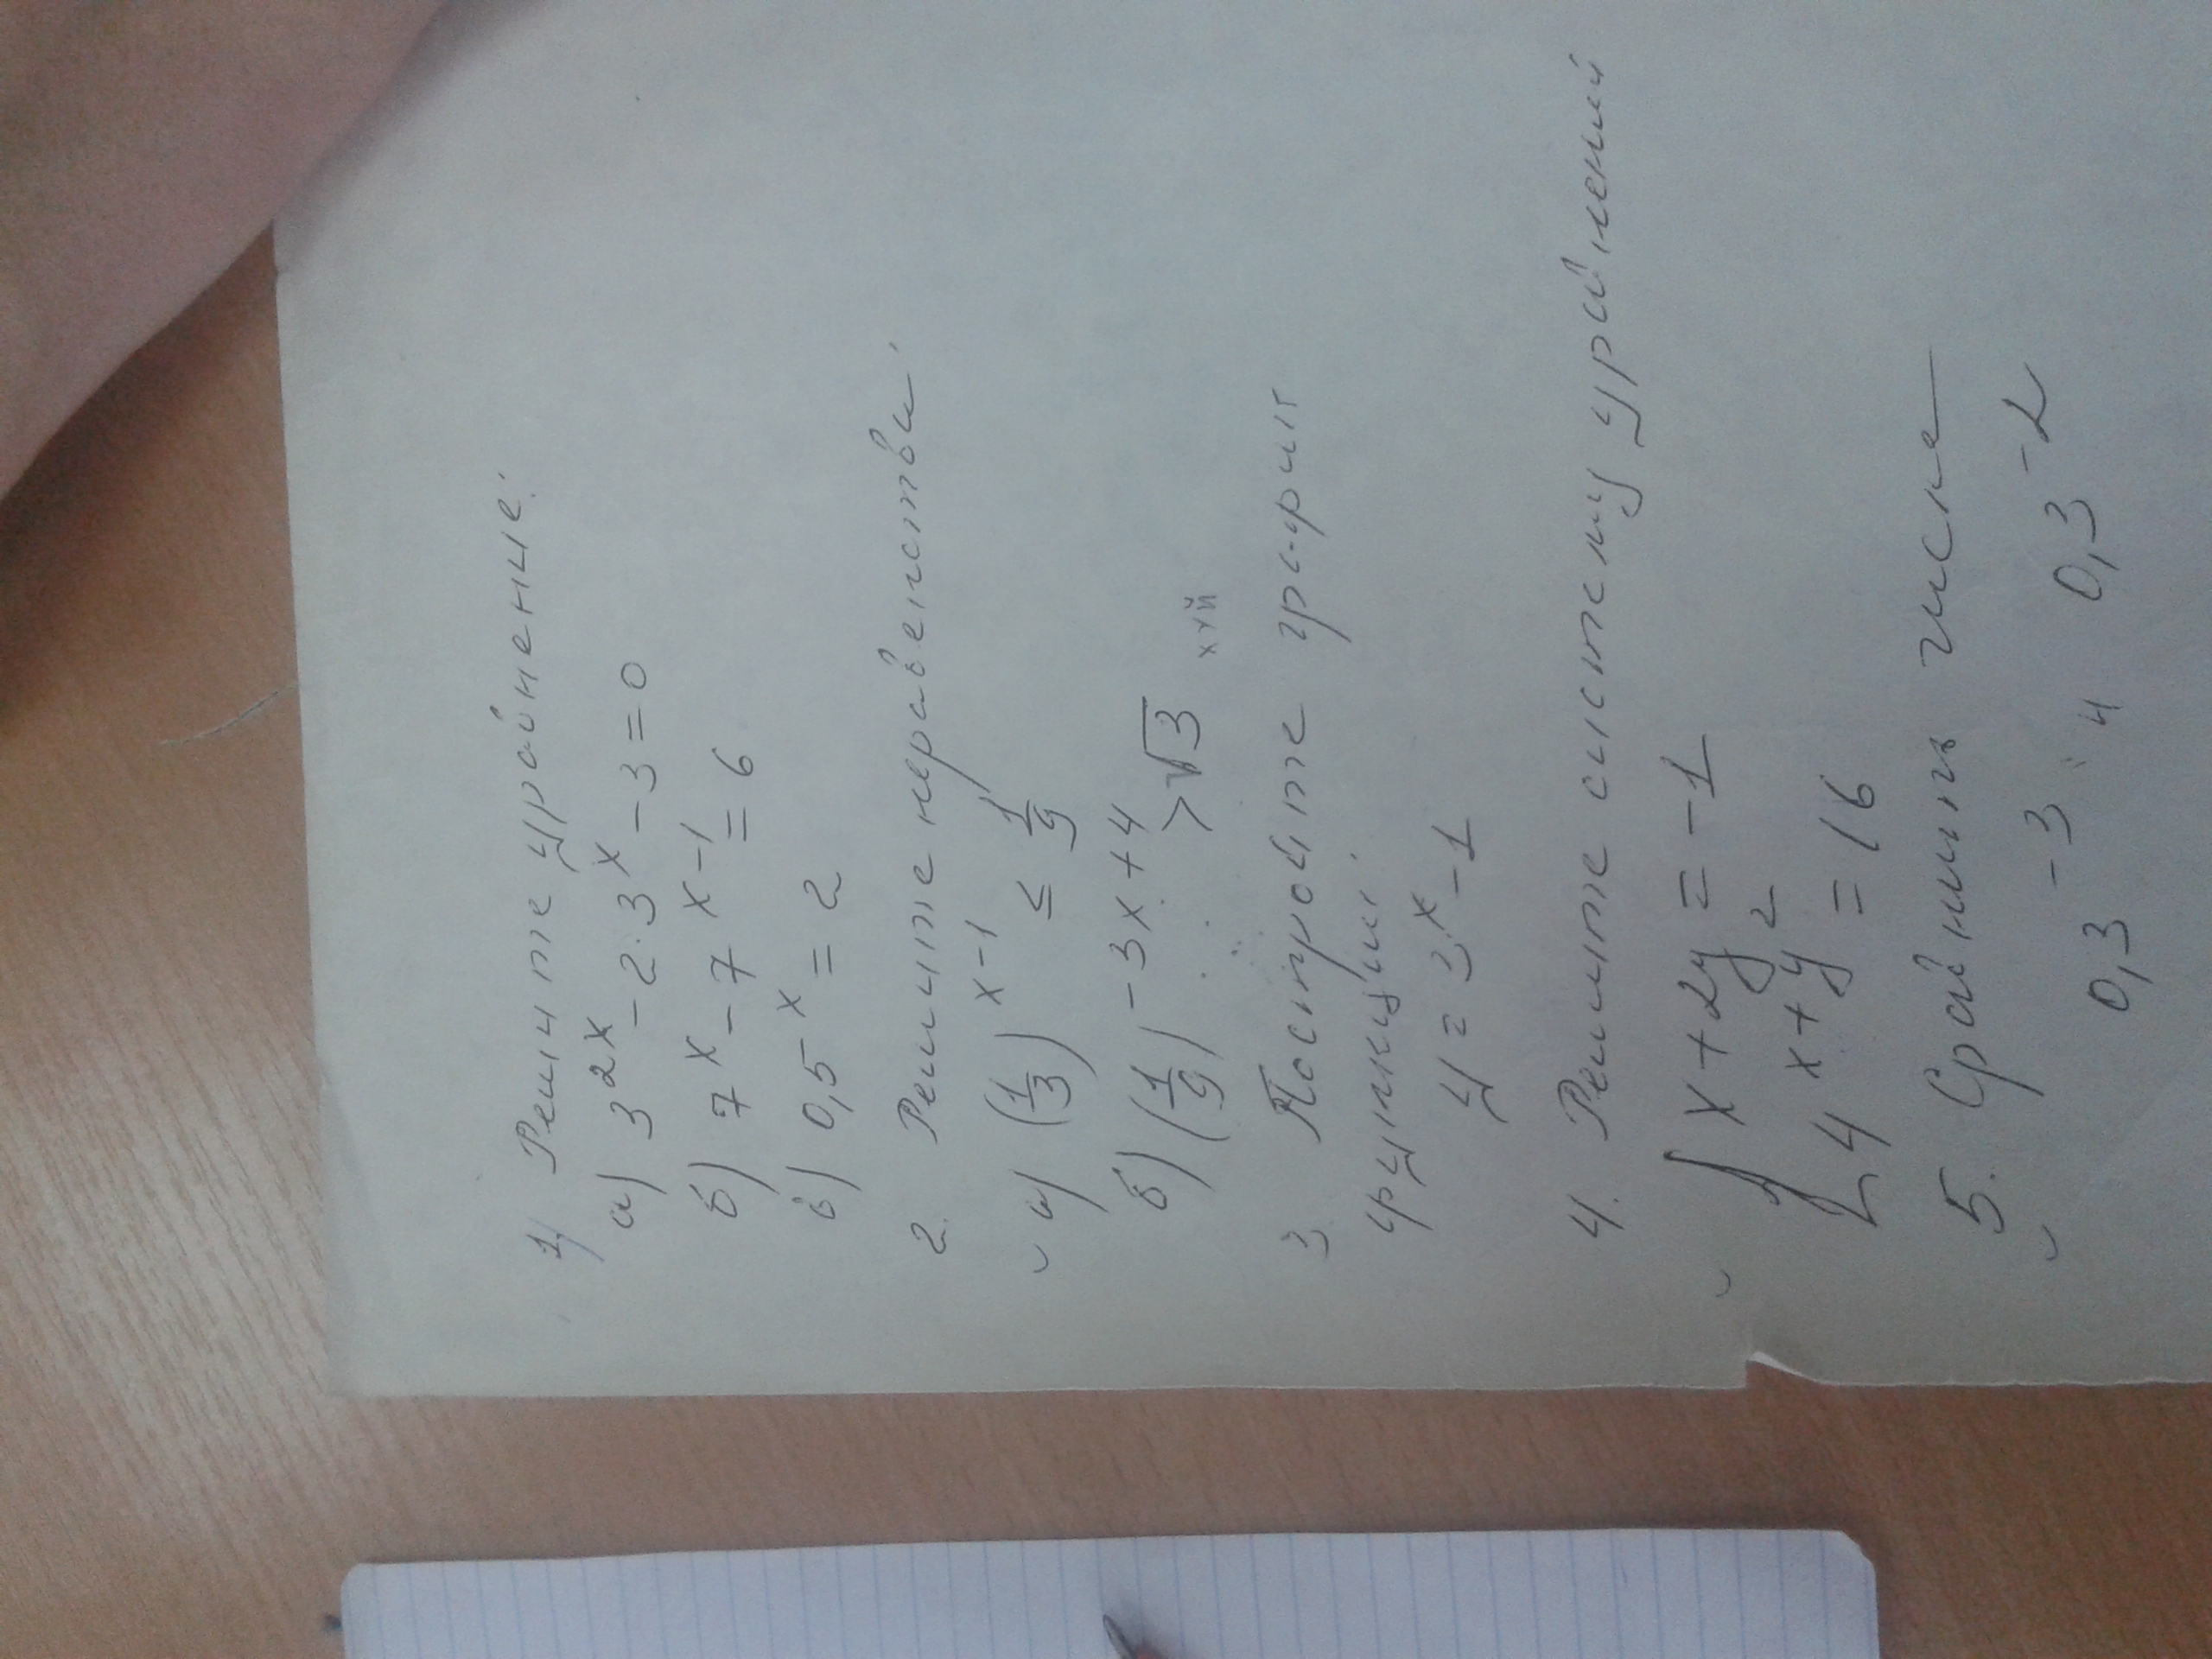 1) Решите уравнение:
а) 3^2x - 2·3^x - 3 = 0
б) 7^x - 7^x-1 = 6
в) 0,5^x = 2
2. Решите неравенства:
а) (1/3)^x-1 ≤ 1/9
б) (1/9)^-3x+4 > √3
хуй
3 Постройте график
функции:
y = 3^x - 1
4. Решите систему уравнений
{ x + 2y = -1
4^x+y^2 = 16
5. Сравнить числа
0,3^-3 и 0,3^-2